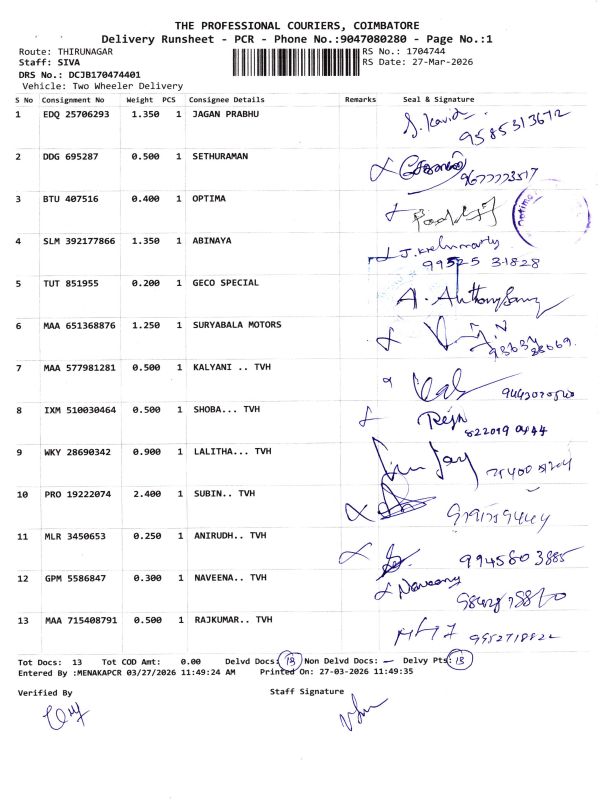 THE PROFESSIONAL COURIERS, COIMBATORE
Delivery Runsheet - PCR - Phone No.:9047080280 - Page No.:1
Route: THIRUNAGAR RS No.: 1704744
Staff: SIVA RS Date: 27-Mar-2026
DRS No.: DCJB170474401
Vehicle: Two Wheeler Delivery
S No Consignment No Weight PCS Consignee Details Remarks Seal & Signature
1 EDQ 25706293 1.350 1 JAGAN PRABHU S. Kavid
9585313672
2 DDG 695287 0.500 1 SETHURAMAN
9677773517
3 BTU 407516 0.400 1 OPTIMA
4 SLM 392177866 1.350 1 ABINAYA
99525 31828
5 TUT 851955 0.200 1 GECO SPECIAL A. Anthony
6 MAA 651368876 1.250 1 SURYABALA MOTORS
7 MAA 577981281 0.500 1 KALYANI .. TVH
8 IXM 510030464 0.500 1 SHOBA... TVH
822019 0444
9 WKY 28690342 0.900 1 LALITHA... TVH
10 PRO 19222074 2.400 1 SUBIN.. TVH
11 MLR 3450653 0.250 1 ANIRUDH.. TVH 9945803885
12 GPM 5586847 0.300 1 NAVEENA.. TVH Naveena
13 MAA 715408791 0.500 1 RAJKUMAR.. TVH
Tot Docs: 13 Tot COD Amt: 0.00 Delvd Docs: 13 Non Delvd Docs: — Delvy Pts: 13
Entered By :MENAKAPCR 03/27/2026 11:49:24 AM Printed On: 27-03-2026 11:49:35
Verified By Staff Signature